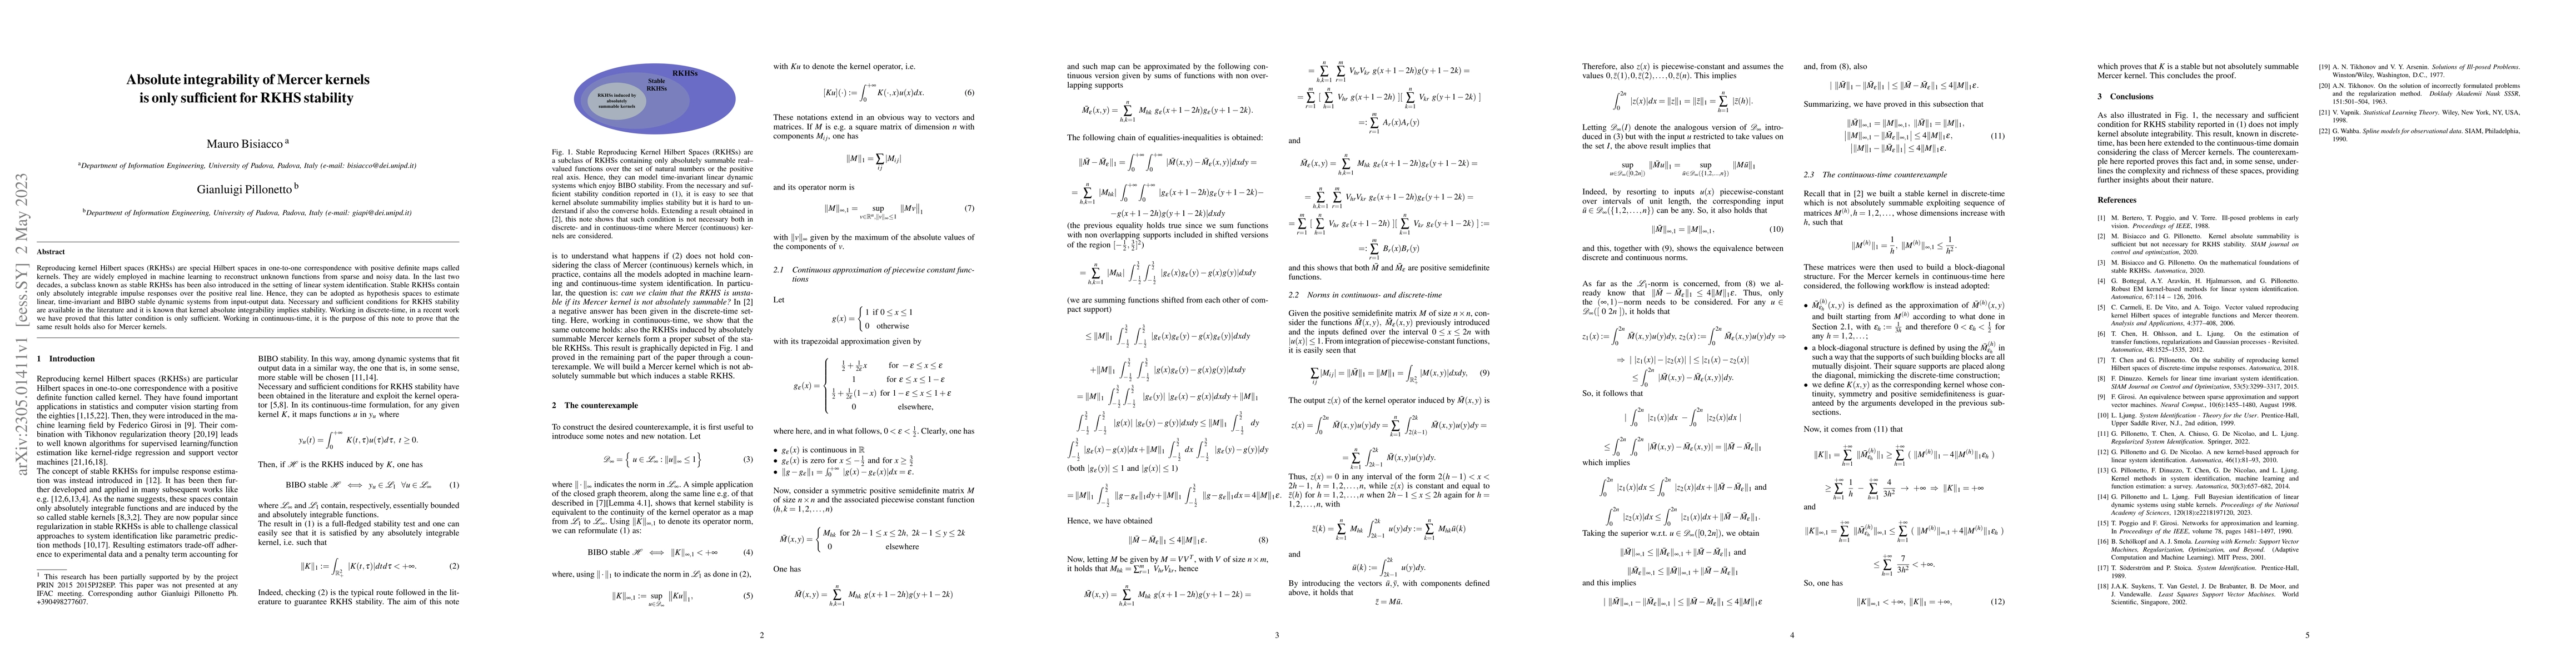 arXiv:2305.01411v1 [eess.SY] 2 May 2023
Absolute integrability of Mercer kernels
is only sufficient for RKHS stability
Mauro Bisiacco a
aDepartment of Information Engineering, University of Padova, Padova, Italy (e-mail: bisiacco@dei.unipd.it)
Gianluigi Pillonetto b
bDepartment of Information Engineering, University of Padova, Padova, Italy (e-mail: giapi@dei.unipd.it)
Abstract
Reproducing kernel Hilbert spaces (RKHSs) are special Hilbert spaces in one-to-one correspondence with positive definite maps called
kernels. They are widely employed in machine learning to reconstruct unknown functions from sparse and noisy data. In the last two
decades, a subclass known as stable RKHSs has been also introduced in the setting of linear system identification. Stable RKHSs contain
only absolutely integrable impulse responses over the positive real line. Hence, they can be adopted as hypothesis spaces to estimate
linear, time-invariant and BIBO stable dynamic systems from input-output data. Necessary and sufficient conditions for RKHS stability
are available in the literature and it is known that kernel absolute integrability implies stability. Working in discrete-time, in a recent work
we have proved that this latter condition is only sufficient. Working in continuous-time, it is the purpose of this note to prove that the
same result holds also for Mercer kernels.
1 Introduction
Reproducing kernel Hilbert spaces (RKHSs) are particular
Hilbert spaces in one-to-one correspondence with a positive
definite function called kernel. They have found important
applications in statistics and computer vision starting from
the eighties [1,15,22]. Then, they were introduced in the ma-
chine learning field by Federico Girosi in [9]. Their com-
bination with Tikhonov regularization theory [20,19] leads
to well known algorithms for supervised learning/function
estimation like kernel-ridge regression and support vector
machines [21,16,18].
The concept of stable RKHSs for impulse response estima-
tion was instead introduced in [12]. It has been then fur-
ther developed and applied in many subsequent works like
e.g. [12,6,13,4]. As the name suggests, these spaces contain
only absolutely integrable functions and are induced by the
so called stable kernels [8,3,2]. They are now popular since
regularization in stable RKHSs is able to challenge classical
approaches to system identification like parametric predic-
tion methods [10,17]. Resulting estimators trade-off adher-
ence to experimental data and a penalty term accounting for
† This research has been partially supported by by the project
PRIN 2015 2015PJ28EP. This paper was not presented at any
IFAC meeting. Corresponding author Gianluigi Pillonetto Ph.
+390498277607.
BIBO stability. In this way, among dynamic systems that fit
output data in a similar way, the one that is, in some sense,
more stable will be chosen [11,14].
Necessary and sufficient conditions for RKHS stability have
been obtained in the literature and exploit the kernel opera-
tor [5,8]. In its continuous-time formulation, for any given
kernel K, it maps functions u in y_u where
y_u(t) = ∫_0^{+∞} K(t,τ)u(τ)dτ, t ≥ 0.
Then, if ℋ is the RKHS induced by K, one has
BIBO stable ℋ ⟺ y_u ∈ ℒ_1 ∀u ∈ ℒ_∞ (1)
where ℒ_∞ and ℒ_1 contain, respectively, essentially bounded
and absolutely integrable functions.
The result in (1) is a full-fledged stability test and one can
easily see that it is satisfied by any absolutely integrable
kernel, i.e. such that
‖K‖_1 := ∫_{ℝ_+^2} |K(t,τ)|dtdτ < +∞. (2)
Indeed, checking (2) is the typical route followed in the lit-
erature to guarantee RKHS stability. The aim of this note
RKHSs
Stable
RKHSs
RKHSs induced by
absolutely
summable kernels
Fig. 1. Stable Reproducing Kernel Hilbert Spaces (RKHSs) are
a subclass of RKHSs containing only absolutely summable real–
valued functions over the set of natural numbers or the positive
real axis. Hence, they can model time-invariant linear dynamic
systems which enjoy BIBO stability. From the necessary and suf-
ficient stability condition reported in (1), it is easy to see that
kernel absolute summability implies stability but it is hard to un-
derstand if also the converse holds. Extending a result obtained in
[2], this note shows that such condition is not necessary both in
discrete- and in continuous-time where Mercer (continuous) ker-
nels are considered.
is to understand what happens if (2) does not hold con-
sidering the class of Mercer (continuous) kernels which, in
practice, contains all the models adopted in machine learn-
ing and continuous-time system identification. In particu-
lar, the question is: can we claim that the RKHS is unsta-
ble if its Mercer kernel is not absolutely summable? In [2]
a negative answer has been given in the discrete-time set-
ting. Here, working in continuous-time, we show that the
same outcome holds: also the RKHSs induced by absolutely
summable Mercer kernels form a proper subset of the sta-
ble RKHSs. This result is graphically depicted in Fig. 1 and
proved in the remaining part of the paper through a coun-
terexample. We will build a Mercer kernel which is not ab-
solutely summable but which induces a stable RKHS.
2 The counterexample
To construct the desired counterexample, it is first useful to
introduce some notes and new notation. Let
𝒟_∞ = { u ∈ ℒ_∞ : ‖u‖_∞ ≤ 1 } (3)
where ‖·‖_∞ indicates the norm in ℒ_∞. A simple application
of the closed graph theorem, along the same line e.g. of that
described in [7][Lemma 4.1], shows that kernel stability is
equivalent to the continuity of the kernel operator as a map
from ℒ_1 to ℒ_∞. Using ‖K‖_{∞,1} to denote its operator norm,
we can reformulate (1) as:
BIBO stable ℋ ⟺ ‖K‖_{∞,1} < +∞ (4)
where, using ‖·‖_1 to indicate the norm in ℒ_1 as done in (2),
‖K‖_{∞,1} := sup_{u∈𝒟_∞} ‖Ku‖_1, (5)
with Ku to denote the kernel operator, i.e.
[Ku](·) := ∫_0^{+∞} K(·,x)u(x)dx. (6)
These notations extend in an obvious way to vectors and
matrices. If M is e.g. a square matrix of dimension n with
components M_{ij}, one has
‖M‖_1 = ∑_{ij} |M_{ij}|
and its operator norm is
‖M‖_{∞,1} = sup_{v∈ℝ^n,‖v‖_∞≤1} ‖Mv‖_1 (7)
with ‖v‖_∞ given by the maximum of the absolute values of
the components of v.
2.1 Continuous approximation of piecewise constant func-
tions
Let
g(x) = { 1 if 0 ≤ x ≤ 1
0 otherwise
with its trapezoidal approximation given by
g_ε(x) = { 1/2 + 1/2ε x for −ε ≤ x ≤ ε
1 for ε ≤ x ≤ 1−ε
1/2 + 1/2ε (1−x) for 1−ε ≤ x ≤ 1+ε
0 elsewhere,
where here, and in what follows, 0 < ε < 1/2. Clearly, one has
• g_ε(x) is continuous in ℝ
• g_ε(x) is zero for x ≤ −1/2 and for x ≥ 3/2
• ‖g − g_ε‖_1 = ∫_0^{+∞} |g(x) − g_ε(x)|dx = ε.
Now, consider a symmetric positive semidefinite matrix M
of size n×n and the associated piecewise constant function
(h,k = 1,2,...,n)
M̄(x,y) = { M_{hk} for 2h−1 ≤ x ≤ 2h, 2k−1 ≤ y ≤ 2k
0 elsewhere
One has
M̄(x,y) = ∑_{h,k=1}^n M_{hk} g(x+1−2h)g(y+1−2k)
2
and such map can be approximated by the following con-
tinuous version given by sums of functions with non over-
lapping supports
M̄_ε(x,y) = ∑_{h,k=1}^n M_{hk} g_ε(x+1−2h)g_ε(y+1−2k).
The following chain of equalities-inequalities is obtained:
‖M̄ − M̄_ε‖_1 = ∫_0^{+∞} ∫_0^{+∞} |M̄(x,y) − M̄_ε(x,y)|dxdy =
= ∑_{h,k=1}^n |M_{hk}| ∫_0^{+∞} ∫_0^{+∞} |g_ε(x+1−2h)g_ε(y+1−2k)−
−g(x+1−2h)g(y+1−2k)|dxdy
(the previous equality holds true since we sum functions
with non overlapping supports included in shifted versions
of the region [−1/2, 3/2]^2)
= ∑_{h,k=1}^n |M_{hk}| ∫_{−1/2}^{3/2} ∫_{−1/2}^{3/2} |g_ε(x)g_ε(y) − g(x)g(y)|dxdy
(we are summing functions shifted from each other of com-
pact support)
≤ ‖M‖_1 ∫_{−1/2}^{3/2} ∫_{−1/2}^{3/2} |g_ε(x)g_ε(y) − g(x)g_ε(y)|dxdy
+‖M‖_1 ∫_{−1/2}^{3/2} ∫_{−1/2}^{3/2} |g(x)g_ε(y) − g(x)g(y)|dxdy
= ‖M‖_1 ∫_{−1/2}^{3/2} ∫_{−1/2}^{3/2} |g_ε(y)| |g_ε(x) − g(x)|dxdy + ‖M‖_1
∫_{−1/2}^{3/2} ∫_{−1/2}^{3/2} |g(x)| |g_ε(y) − g(y)|dxdy ≤ ‖M‖_1 ∫_{−1/2}^{3/2} dy
∫_{−1/2}^{3/2} |g_ε(x) − g(x)|dx + ‖M‖_1 ∫_{−1/2}^{3/2} dx ∫_{−1/2}^{3/2} |g_ε(y) − g(y)|dy
(both |g_ε(y)| ≤ 1 and |g(x)| ≤ 1)
= ‖M‖_1 ∫_{−1/2}^{3/2} ‖g − g_ε‖_1dy + ‖M‖_1 ∫_{−1/2}^{3/2} ‖g − g_ε‖_1dx = 4‖M‖_1ε.
Hence, we have obtained
‖M̄ − M̄_ε‖_1 ≤ 4‖M‖_1ε. (8)
Now, letting M be given by M = VV^T, with V of size n×m,
it holds that M_{hk} = ∑_{r=1}^m V_{hr}V_{kr}, hence
M̄(x,y) = ∑_{h,k=1}^n M_{hk} g(x+1−2h)g(y+1−2k) =
= ∑_{h,k=1}^n ∑_{r=1}^m V_{hr}V_{kr} g(x+1−2h)g(y+1−2k) =
= ∑_{r=1}^m [ ∑_{h=1}^n V_{hr} g(x+1−2h) ][ ∑_{k=1}^n V_{kr} g(y+1−2k) ]
=: ∑_{r=1}^m A_r(x)A_r(y)
and
M̄_ε(x,y) = ∑_{h,k=1}^n M_{hk} g_ε(x+1−2h)g_ε(y+1−2k) =
= ∑_{h,k=1}^n ∑_{r=1}^m V_{hr}V_{kr} g_ε(x+1−2h)g_ε(y+1−2k) =
= ∑_{r=1}^m [ ∑_{h=1}^n V_{hr} g_ε(x+1−2h) ][ ∑_{k=1}^n V_{kr} g_ε(y+1−2k) ] :=
=: ∑_{r=1}^m B_r(x)B_r(y)
and this shows that both M̄ and M̄_ε are positive semidefinite
functions.
2.2 Norms in continuous- and discrete-time
Given the positive semidefinite matrix M of size n×n, con-
sider the functions M̄(x,y), M̄_ε(x,y) previously introduced
and the inputs defined over the interval 0 ≤ x ≤ 2n with
|u(x)| ≤ 1. From integration of piecewise-constant functions,
it is easily seen that
∑_{ij} |M_{ij}| = ‖M̄‖_1 = ‖M‖_1 = ∫_{ℝ_+^2} |M(x,y)|dxdy, (9)
The output z(x) of the kernel operator induced by M̄(x,y) is
z(x) = ∫_0^{2n} M̄(x,y)u(y)dy = ∑_{k=1}^n ∫_{2(k−1)}^{2k} M̄(x,y)u(y)dy =
= ∑_{k=1}^n ∫_{2k−1}^{2k} M̄(x,y)u(y)dy.
Thus, z(x) = 0 in any interval of the form 2(h−1) < x <
2h−1, h = 1,2,...,n, while z(x) is constant and equal to
z̄(h) for h = 1,2,...,n when 2h−1 ≤ x ≤ 2h again for h =
1,2,...,n, with
z̄(k) = ∑_{k=1}^n M_{hk} ∫_{2k−1}^{2k} u(y)dy := ∑_{k=1}^n M_{hk}ū(k)
and
ū(k) := ∫_{2k−1}^{2k} u(y)dy.
By introducing the vectors ū,ȳ, with components defined
above, it holds that
z̄ = Mū.
3
Therefore, also z(x) is piecewise-constant and assumes the
values 0, z̄(1), 0, z̄(2), ..., 0, z̄(n). This implies
∫_0^{2n} |z(x)|dx = ‖z‖_1 = ‖z̄‖_1 = ∑_{h=1}^n |z̄(h)|.
Letting 𝒟_∞(I) denote the analogous version of 𝒟_∞ intro-
duced in (3) but with the input u restricted to take values on
the set I, the above result implies that
sup_{u∈𝒟_∞([0,2n])} ‖M̄u‖_1 = sup_{ū∈𝒟_∞({1,2,...,n})} ‖Mū‖_1
Indeed, by resorting to inputs u(x) piecewise-constant
over intervals of unit length, the corresponding input
ū ∈ 𝒟_∞({1,2,...,n}) can be any. So, it also holds that
‖M̄‖_{∞,1} = ‖M‖_{∞,1}, (10)
and this, together with (9), shows the equivalence between
discrete and continuous norms.
As far as the ℒ_1-norm is concerned, from (8) we al-
ready know that ‖M̄ − M̄_ε‖_1 ≤ 4‖M‖_1ε. Thus, only
the (∞,1)−norm needs to be considered. For any u ∈
𝒟_∞([ 0 2n ]), it holds that
z_1(x) := ∫_0^{2n} M̄(x,y)u(y)dy, z_2(x) := ∫_0^{2n} M̄_ε(x,y)u(y)dy ⇒
⇒ | |z_1(x)| − |z_2(x)| | ≤ |z_1(x) − z_2(x)|
≤ ∫_0^{2n} |M̄(x,y) − M̄_ε(x,y)|dy.
So, it follows that
| ∫_0^{2n} |z_1(x)|dx − ∫_0^{2n} |z_2(x)|dx |
≤ ∫_0^{2n} ∫_0^{2n} |M̄(x,y) − M̄_ε(x,y)|dxdy = ‖M̄ − M̄_ε‖_1
which implies
∫_0^{2n} |z_1(x)|dx ≤ ∫_0^{2n} |z_2(x)|dx + ‖M̄ − M̄_ε‖_1
∫_0^{2n} |z_2(x)|dx ≤ ∫_0^{2n} |z_1(x)|dx + ‖M̄ − M̄_ε‖_1.
Taking the superior w.r.t. u ∈ 𝒟_∞([0,2n]), we obtain
‖M̄‖_{∞,1} ≤ ‖M̄_ε‖_{∞,1} + ‖M̄ − M̄_ε‖_1
‖M̄_ε‖_{∞,1} ≤ ‖M̄‖_{∞,1} + ‖M̄ − M̄_ε‖_1
and this implies
| ‖M̄‖_{∞,1} − ‖M̄_ε‖_{∞,1} | ≤ ‖M̄ − M̄_ε‖_1 ≤ 4‖M‖_1ε
and, from (8), also
| ‖M̄‖_1 − ‖M̄_ε‖_1 | ≤ ‖M̄ − M̄_ε‖_1 ≤ 4‖M‖_1ε.
Summarizing, we have proved in this subsection that
‖M̄‖_{∞,1} = ‖M‖_{∞,1}, ‖M̄‖_1 = ‖M‖_1,
|‖M‖_{∞,1} − ‖M̄_ε‖_{∞,1}| ≤ 4‖M‖_1ε, (11)
|‖M‖_1 − ‖M̄_ε‖_1| ≤ 4‖M‖_1ε.
2.3 The continuous-time counterexample
Recall that in [2] we built a stable kernel in discrete-time
which is not absolutely summable exploiting sequence of
matrices M^{(h)}, h = 1,2,..., whose dimensions increase with
h, such that
‖M^{(h)}‖_1 = 1/h, ‖M^{(h)}‖_{∞,1} ≤ 1/h^2.
These matrices were then used to build a block-diagonal
structure. For the Mercer kernels in continuous-time here
considered, the following workflow is instead adopted:
• M̄_{ε_h}^{(h)}(x,y) is defined as the approximation of M̄^{(h)}(x,y)
and built starting from M^{(h)} according to what done in
Section 2.1, with ε_h := 1/3h and therefore 0 < ε_h < 1/2 for
any h = 1,2,...;
• a block-diagonal structure is defined by using the M̄_{ε_h}^{(h)} in
such a way that the supports of such building blocks are all
mutually disjoint. Their square supports are placed along
the diagonal, mimicking the discrete-time construction;
• we define K(x,y) as the corresponding kernel whose con-
tinuity, symmetry and positive semidefiniteness is guar-
anteed by the arguments developed in the previous sub-
sections.
Now, it comes from (11) that
‖K‖_1 = ∑_{h=1}^{+∞} ‖M̄_{ε_h}^{(h)}‖_1 ≥ ∑_{h=1}^{+∞} ( ‖M^{(h)}‖_1 − 4‖M^{(h)}‖_1ε_h )
≥ ∑_{h=1}^{+∞} 1/h − ∑_{h=1}^{+∞} 4/3h^2 → +∞ ⇒ ‖K‖_1 = +∞
and
‖K‖_{∞,1} = ∑_{h=1}^{+∞} ‖M̄_{ε_h}^{(h)}‖_{∞,1} ≤ ∑_{h=1}^{+∞} ( ‖M^{(h)}‖_{∞,1} + 4‖M^{(h)}‖_1ε_h )
≤ ∑_{h=1}^{+∞} 7/3h^2 < +∞.
So, one has
‖K‖_{∞,1} < +∞, ‖K‖_1 = +∞, (12)
4
which proves that K is a stable but not absolutely summable
Mercer kernel. This concludes the proof.
3 Conclusions
As also illustrated in Fig. 1, the necessary and sufficient
condition for RKHS stability reported in (1) does not imply
kernel absolute integrability. This result, known in discrete-
time, has been here extended to the continuous-time domain
considering the class of Mercer kernels. The counterexam-
ple here reported proves this fact and, in some sense, under-
lines the complexity and richness of these spaces, providing
further insights about their nature.
References
[1] M. Bertero, T. Poggio, and V. Torre. Ill-posed problems in early
vision. Proceedings of IEEE, 1988.
[2] M. Bisiacco and G. Pillonetto. Kernel absolute summability is
sufficient but not necessary for RKHS stability. SIAM journal on
control and optimization, 2020.
[3] M. Bisiacco and G. Pillonetto. On the mathematical foundations of
stable RKHSs. Automatica, 2020.
[4] G. Bottegal, A.Y. Aravkin, H. Hjalmarsson, and G. Pillonetto.
Robust EM kernel-based methods for linear system identification.
Automatica, 67:114 – 126, 2016.
[5] C. Carmeli, E. De Vito, and A. Toigo. Vector valued reproducing
kernel Hilbert spaces of integrable functions and Mercer theorem.
Analysis and Applications, 4:377–408, 2006.
[6] T. Chen, H. Ohlsson, and L. Ljung. On the estimation of
transfer functions, regularizations and Gaussian processes - Revisited.
Automatica, 48:1525–1535, 2012.
[7] T. Chen and G. Pillonetto. On the stability of reproducing kernel
Hilbert spaces of discrete-time impulse responses. Automatica, 2018.
[8] F. Dinuzzo. Kernels for linear time invariant system identification.
SIAM Journal on Control and Optimization, 53(5):3299–3317, 2015.
[9] F. Girosi. An equivalence between sparse approximation and support
vector machines. Neural Comput., 10(6):1455–1480, August 1998.
[10] L. Ljung. System Identification - Theory for the User. Prentice-Hall,
Upper Saddle River, N.J., 2nd edition, 1999.
[11] G. Pillonetto, T. Chen, A. Chiuso, G. De Nicolao, and L. Ljung.
Regularized System Identification. Springer, 2022.
[12] G. Pillonetto and G. De Nicolao. A new kernel-based approach for
linear system identification. Automatica, 46(1):81–93, 2010.
[13] G. Pillonetto, F. Dinuzzo, T. Chen, G. De Nicolao, and L. Ljung.
Kernel methods in system identification, machine learning and
function estimation: a survey. Automatica, 50(3):657–682, 2014.
[14] G. Pillonetto and L. Ljung. Full Bayesian identification of linear
dynamic systems using stable kernels. Proceedings of the National
Academy of Sciences, 120(18):e2218197120, 2023.
[15] T. Poggio and F. Girosi. Networks for approximation and learning.
In Proceedings of the IEEE, volume 78, pages 1481–1497, 1990.
[16] B. Schölkopf and A. J. Smola. Learning with Kernels: Support Vector
Machines, Regularization, Optimization, and Beyond. (Adaptive
Computation and Machine Learning). MIT Press, 2001.
[17] T. Söderström and P. Stoica. System Identification. Prentice-Hall,
1989.
[18] J.A.K. Suykens, T. Van Gestel, J. De Brabanter, B. De Moor, and
J. Vandewalle. Least Squares Support Vector Machines. World
Scientific, Singapore, 2002.
[19] A. N. Tikhonov and V. Y. Arsenin. Solutions of Ill-posed Problems.
Winston/Wiley, Washington, D.C., 1977.
[20] A.N. Tikhonov. On the solution of incorrectly formulated problems
and the regularization method. Doklady Akademii Nauk SSSR,
151:501–504, 1963.
[21] V. Vapnik. Statistical Learning Theory. Wiley, New York, NY, USA,
1998.
[22] G. Wahba. Spline models for observational data. SIAM, Philadelphia,
1990.
5